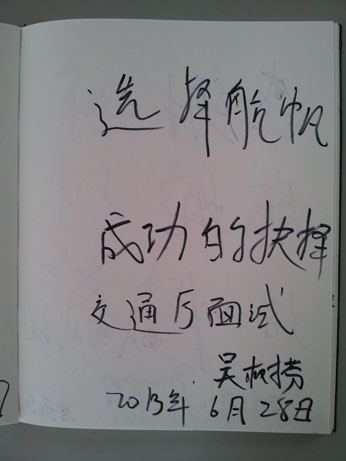 选择航帆
成功的抉择
交通厅面试
吴
2013年 6月28日